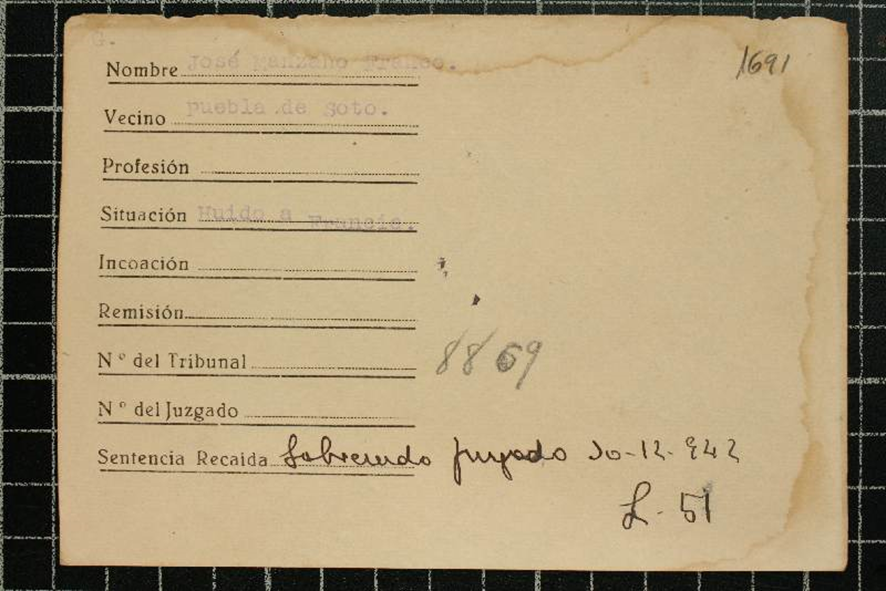 G.
1691
Nombre José Manzano Franco.
Vecino Puebla de Soto.
Profesión
Situación Huido a Francia.
Incoación
Remisión
Nº del Tribunal 8869
Nº del Juzgado
Sentencia Recaida Sobreseido Juzgado 30-12-942
L-51